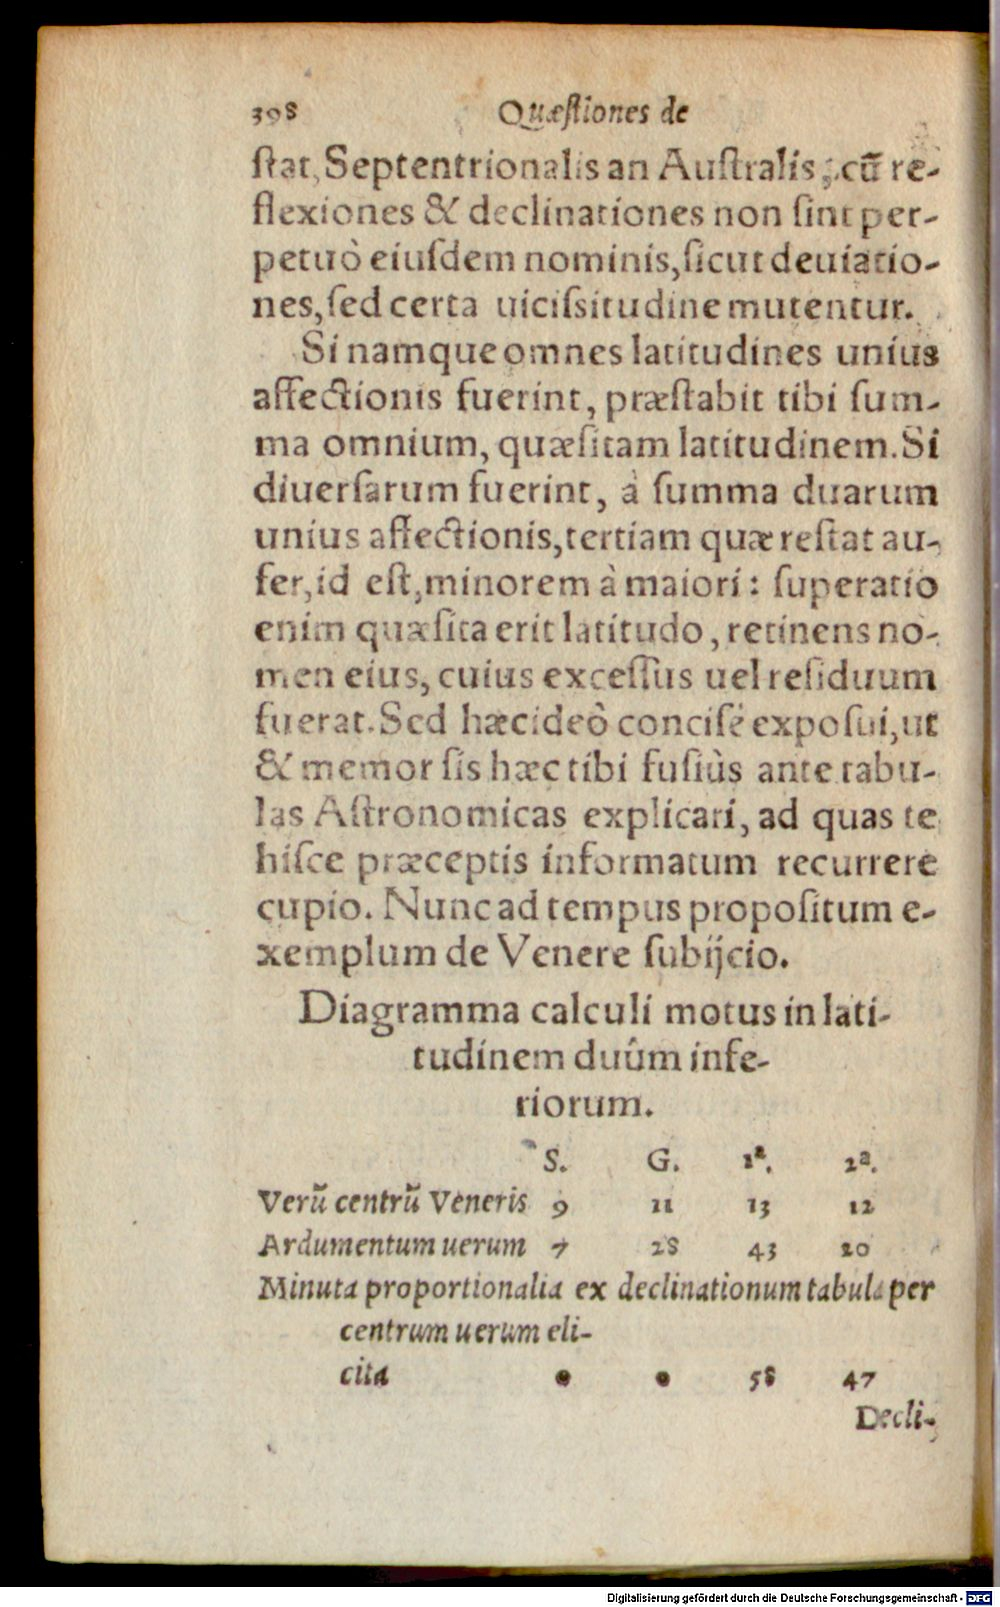 398 Quæſtiones de
ſtat, Septentrionalis an Auſtralis, cũ re-
flexiones & declinationes non ſint per-
petuò eiuſdem nominis, ſicut deuiatio-
nes, ſed certa uiciſsitudine mutentur.
Si namque omnes latitudines unius
affectionis fuerint, præſtabit tibi ſum-
ma omnium, quæſitam latitudinem. Si
diuerſarum fuerint, à ſumma duarum
unius affectionis, tertiam quæ reſtat au-
fer, id eſt, minorem à maiori: ſuperatio
enim quæſita erit latitudo, retinens no-
men eius, cuius exceſſus uel reſiduum
fuerat. Sed hæc ideò conciſè expoſui, ut
& memor ſis hæc tibi fuſiùs ante tabu-
las Aſtronomicas explicari, ad quas te
hiſce præceptis informatum recurrere
cupio. Nunc ad tempus propoſitum e-
xemplum de Venere ſubijcio.
Diagramma calculi motus in lati-
tudinem duûm infe-
riorum.
S. G. 1ª. 2ª.
Verũ centrũ Veneris 9 11 13 12
Ardumentum uerum 7 28 43 20
Minuta proportionalia ex declinationum tabula per
centrum uerum eli-
cita • • 58 47
Decli-
Digitalisierung gefördert durch die Deutsche Forschungsgemeinschaft - DFG